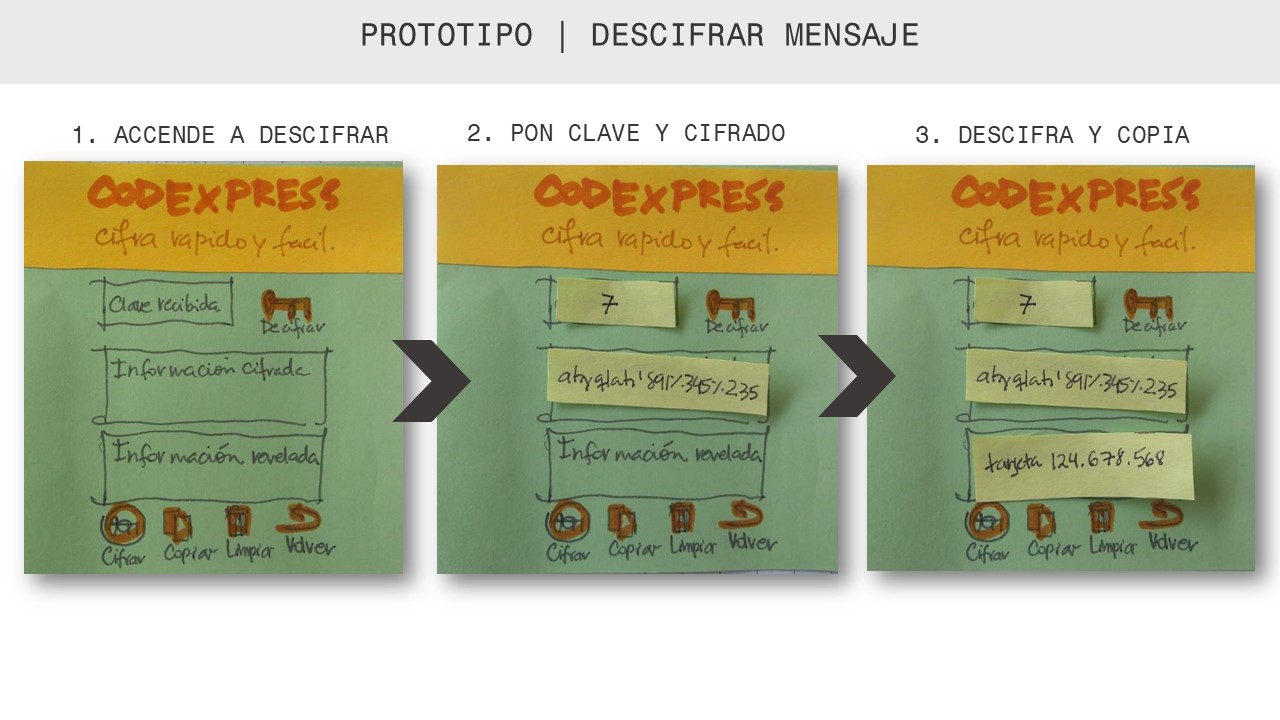 PROTOTIPO | DESCIFRAR MENSAJE
1. ACCENDE A DESCIFRAR
CODEXPRESS
cifra rapido y facil.
Clave recibida
Decifrar
Información cifrada
Información revelada
Cifrar Copiar Limpiar Volver
2. PON CLAVE Y CIFRADO
CODEXPRESS
cifra rapido y facil.
7
Decifrar
345%.235
Información revelada
Cifrar Copiar Limpiar Volver
3. DESCIFRA Y COPIA
CODEXPRESS
cifra rapido y facil.
7
Decifrar
345%.235
tarjeta 124.678.568
Cifrar Copiar Limpiar Volver